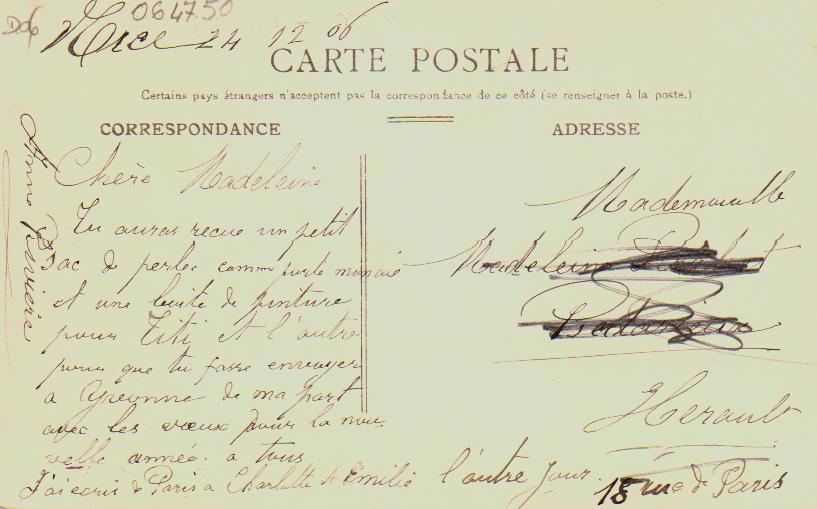 064750
Nice 24 12 06
CARTE POSTALE
Certains pays étrangers n'acceptent pas la correspondance de ce côté (se renseigner à la poste.)
CORRESPONDANCE
ADRESSE
Chère Madeleine
Tu auras recue un petit
Sac de perles comm porte monaie
et une boite de pinture
pour Titi et l'autre
pour que tu fasse envoyer
a Yvonne de ma part
avec les vœux pour la nou
velle année. a tous
J'ai ecris de Paris a Charlotte et Emilie l'autre jour.
Anna
Mademoiselle
Madeleine
Herault
18 rue de Paris